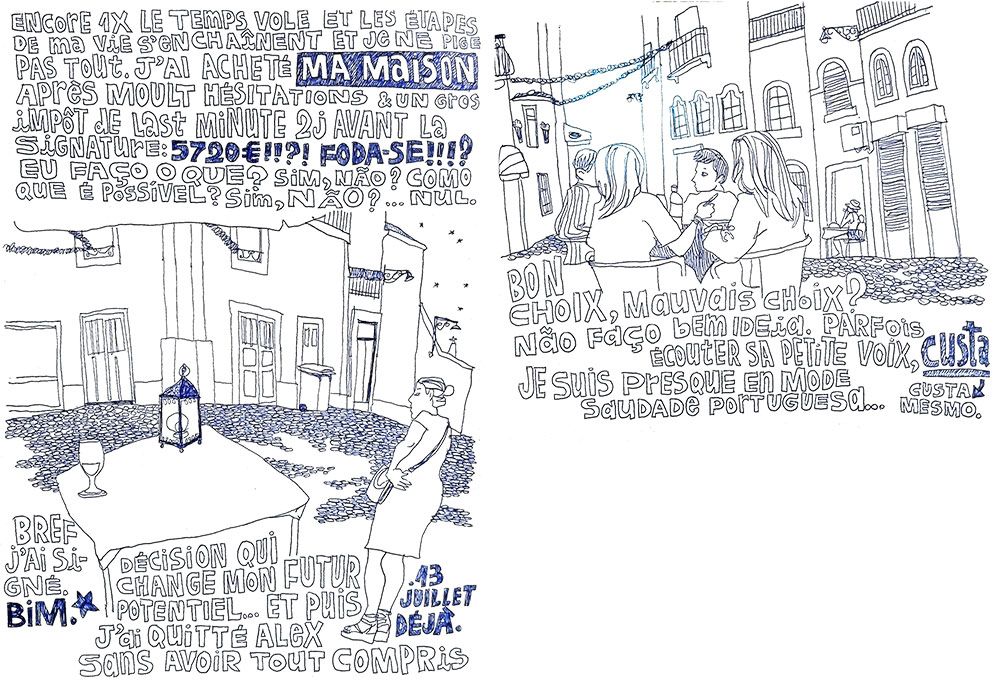 ENCORE 1X LE TEMPS VOLE ET LES ÉTAPES
DE MA VIE S'ENCHAÎNENT ET JE NE PIGE
PAS TOUT. J'AI ACHETÉ MA MAISON
APRÈS MOULT HÉSITATIONS & UN GROS
IMPÔT DE LAST MINUTE 2J AVANT LA
SIGNATURE: 5720€!!?! FODA-SE!!!?
EU FAÇO O QUE? SIM, NÃO? COMO
QUE É POSSÍVEL? SIM, NÃO?... NUL.
BREF
J'AI SI-
GNÉ.
BIM.
DÉCISION QUI
CHANGE MON FUTUR
POTENTIEL... ET PUIS
J'AI QUITTÉ ALEX
SANS AVOIR TOUT COMPRIS
.13
JUILLET
DÉJÀ.
BON
CHOIX, MAUVAIS CHOIX?
NÃO FAÇO BEM IDEIA. PARFOIS
ÉCOUTER SA PETITE VOIX, CUSTA
JE SUIS PRESQUE EN MODE
SAUDADE PORTUGUESA...
CUSTA
MESMO.